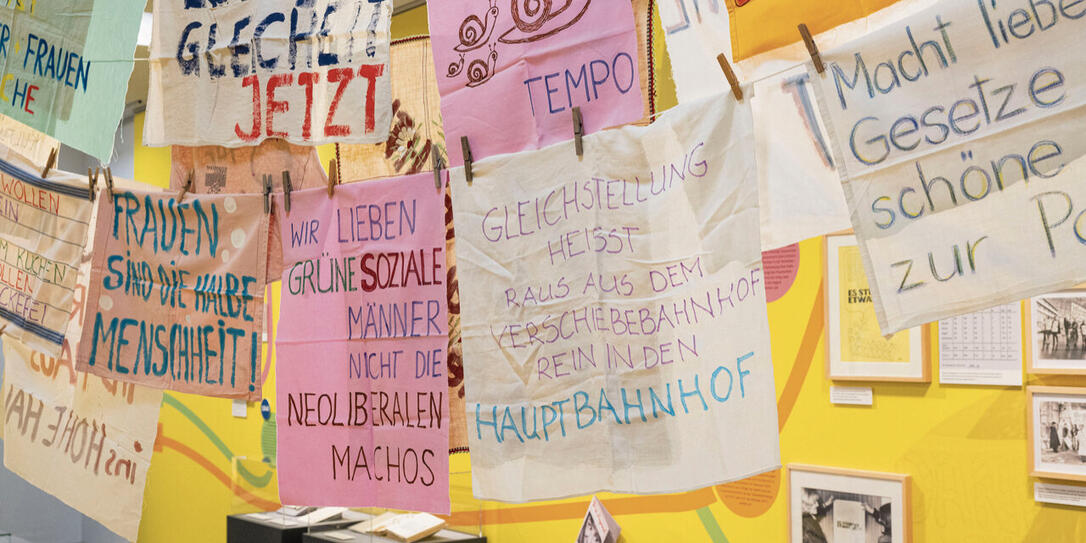 FRAUEN
HE
GLECHEIT
JETZT
TEMPO
Macht liebe
Gesetze
schöne
zur
WOLLEN
FRAUEN
SIND DIE HALBE
MENSCHHEIT!
WIR LIEBEN
GRÜNE SOZIALE
MÄNNER
NICHT DIE
NEOLIBERALEN
MACHOS
GLEICHSTELLUNG
HEISST
RAUS AUS DEM
VERSCHIEBEBAHNHOF
REIN IN DEN
HAUPTBAHNHOF
ins HOHE HA
ES STE
ETWA